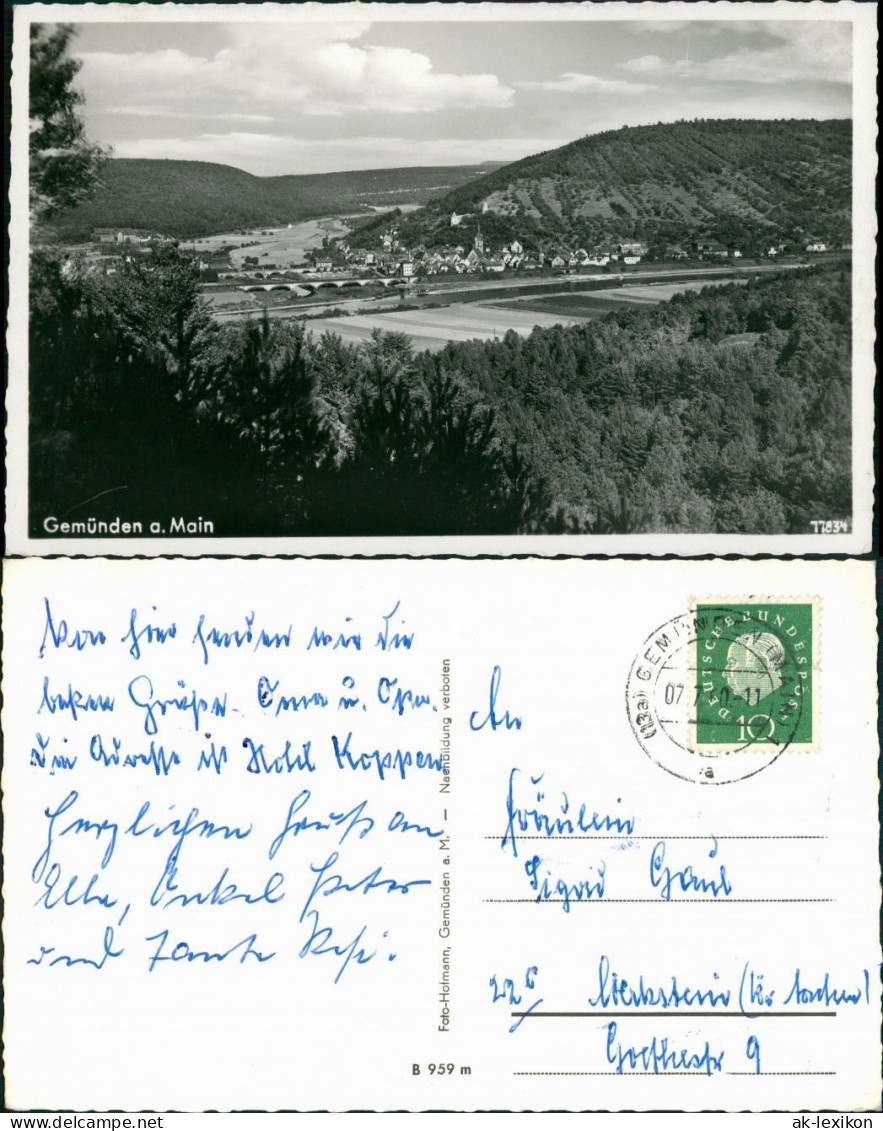 Gemünden a. Main
77834
Von hier senden wir die
besten Grüße. Oma u. Opa.
Die Adresse ist Hotel Koppen
Herzlichen Gruß an
Elle, Onkel Peter
und Tante Resi.
Foto-Hofmann, Gemünden a. M. — Nachbildung verboten
B 959 m
(13a) GEMÜNDEN (MAIN) 1
07.7.60.-11
a
DEUTSCHE BUNDESPOST
10
An
Fräulein
Sigrid Gaul
22c Merkstein (Kr. Aachen)
Goethestr 9
www.ansichtskarten-lexikon.de
ak-lexikon